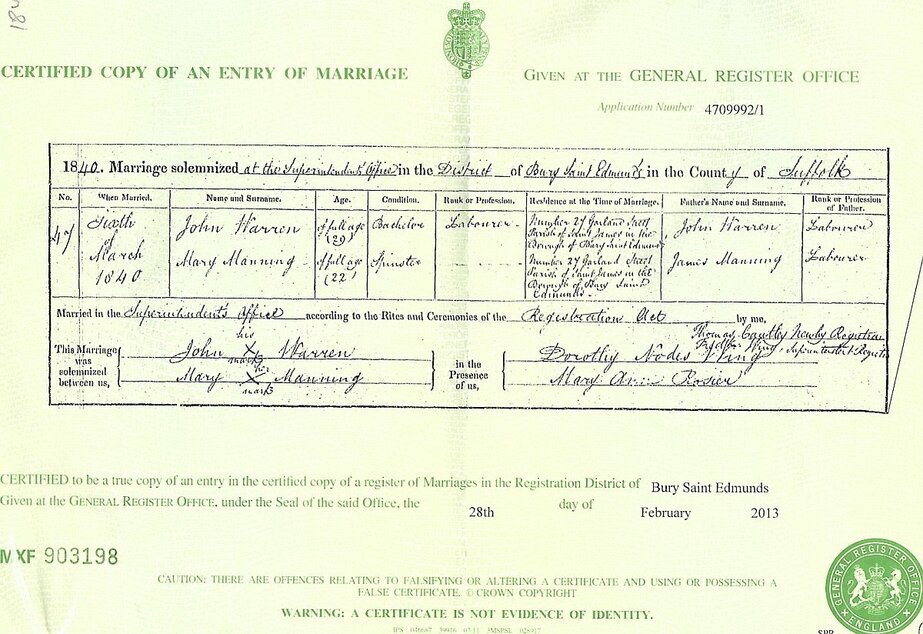 CERTIFIED COPY OF AN ENTRY OF MARRIAGE
GIVEN AT THE GENERAL REGISTER OFFICE
Application Number 4709992/1
1840. Marriage solemnized at the Superintendent's Office in the District of Bury Saint Edmunds in the County of Suffolk
No. When Married. Name and Surname. Age. Condition. Rank or Profession. Residence at the Time of Marriage. Father's Name and Surname. Rank or Profession of Father.
47 Sixth of March 1840 John Warren of full age (29) Bachelor Labourer Number 27 Garland Street Parish of Saint James in the Borough of Bury Saint Edmunds John Warren Labourer
Mary Manning of full age (22) Spinster Number 27 Garland Street Parish of Saint James in the Borough of Bury Saint Edmunds James Manning Labourer
Married in the Superintendent's Office according to the Rites and Ceremonies of the Registration Act by me,
Thomas Newby Registrar
Wing, Superintendent Registrar
This Marriage was solemnized between us,
John X Warren his mark
Mary X Manning her mark
in the Presence of us,
Dorothy Nodes Wing
Mary Ann Rosier
CERTIFIED to be a true copy of an entry in the certified copy of a register of Marriages in the Registration District of Bury Saint Edmunds
Given at the GENERAL REGISTER OFFICE, under the Seal of the said Office, the 28th day of February 2013
MXF 903198
CAUTION: THERE ARE OFFENCES RELATING TO FALSIFYING OR ALTERING A CERTIFICATE AND USING OR POSSESSING A
FALSE CERTIFICATE. © CROWN COPYRIGHT
WARNING: A CERTIFICATE IS NOT EVIDENCE OF IDENTITY.
GENERAL REGISTER OFFICE
ENGLAND